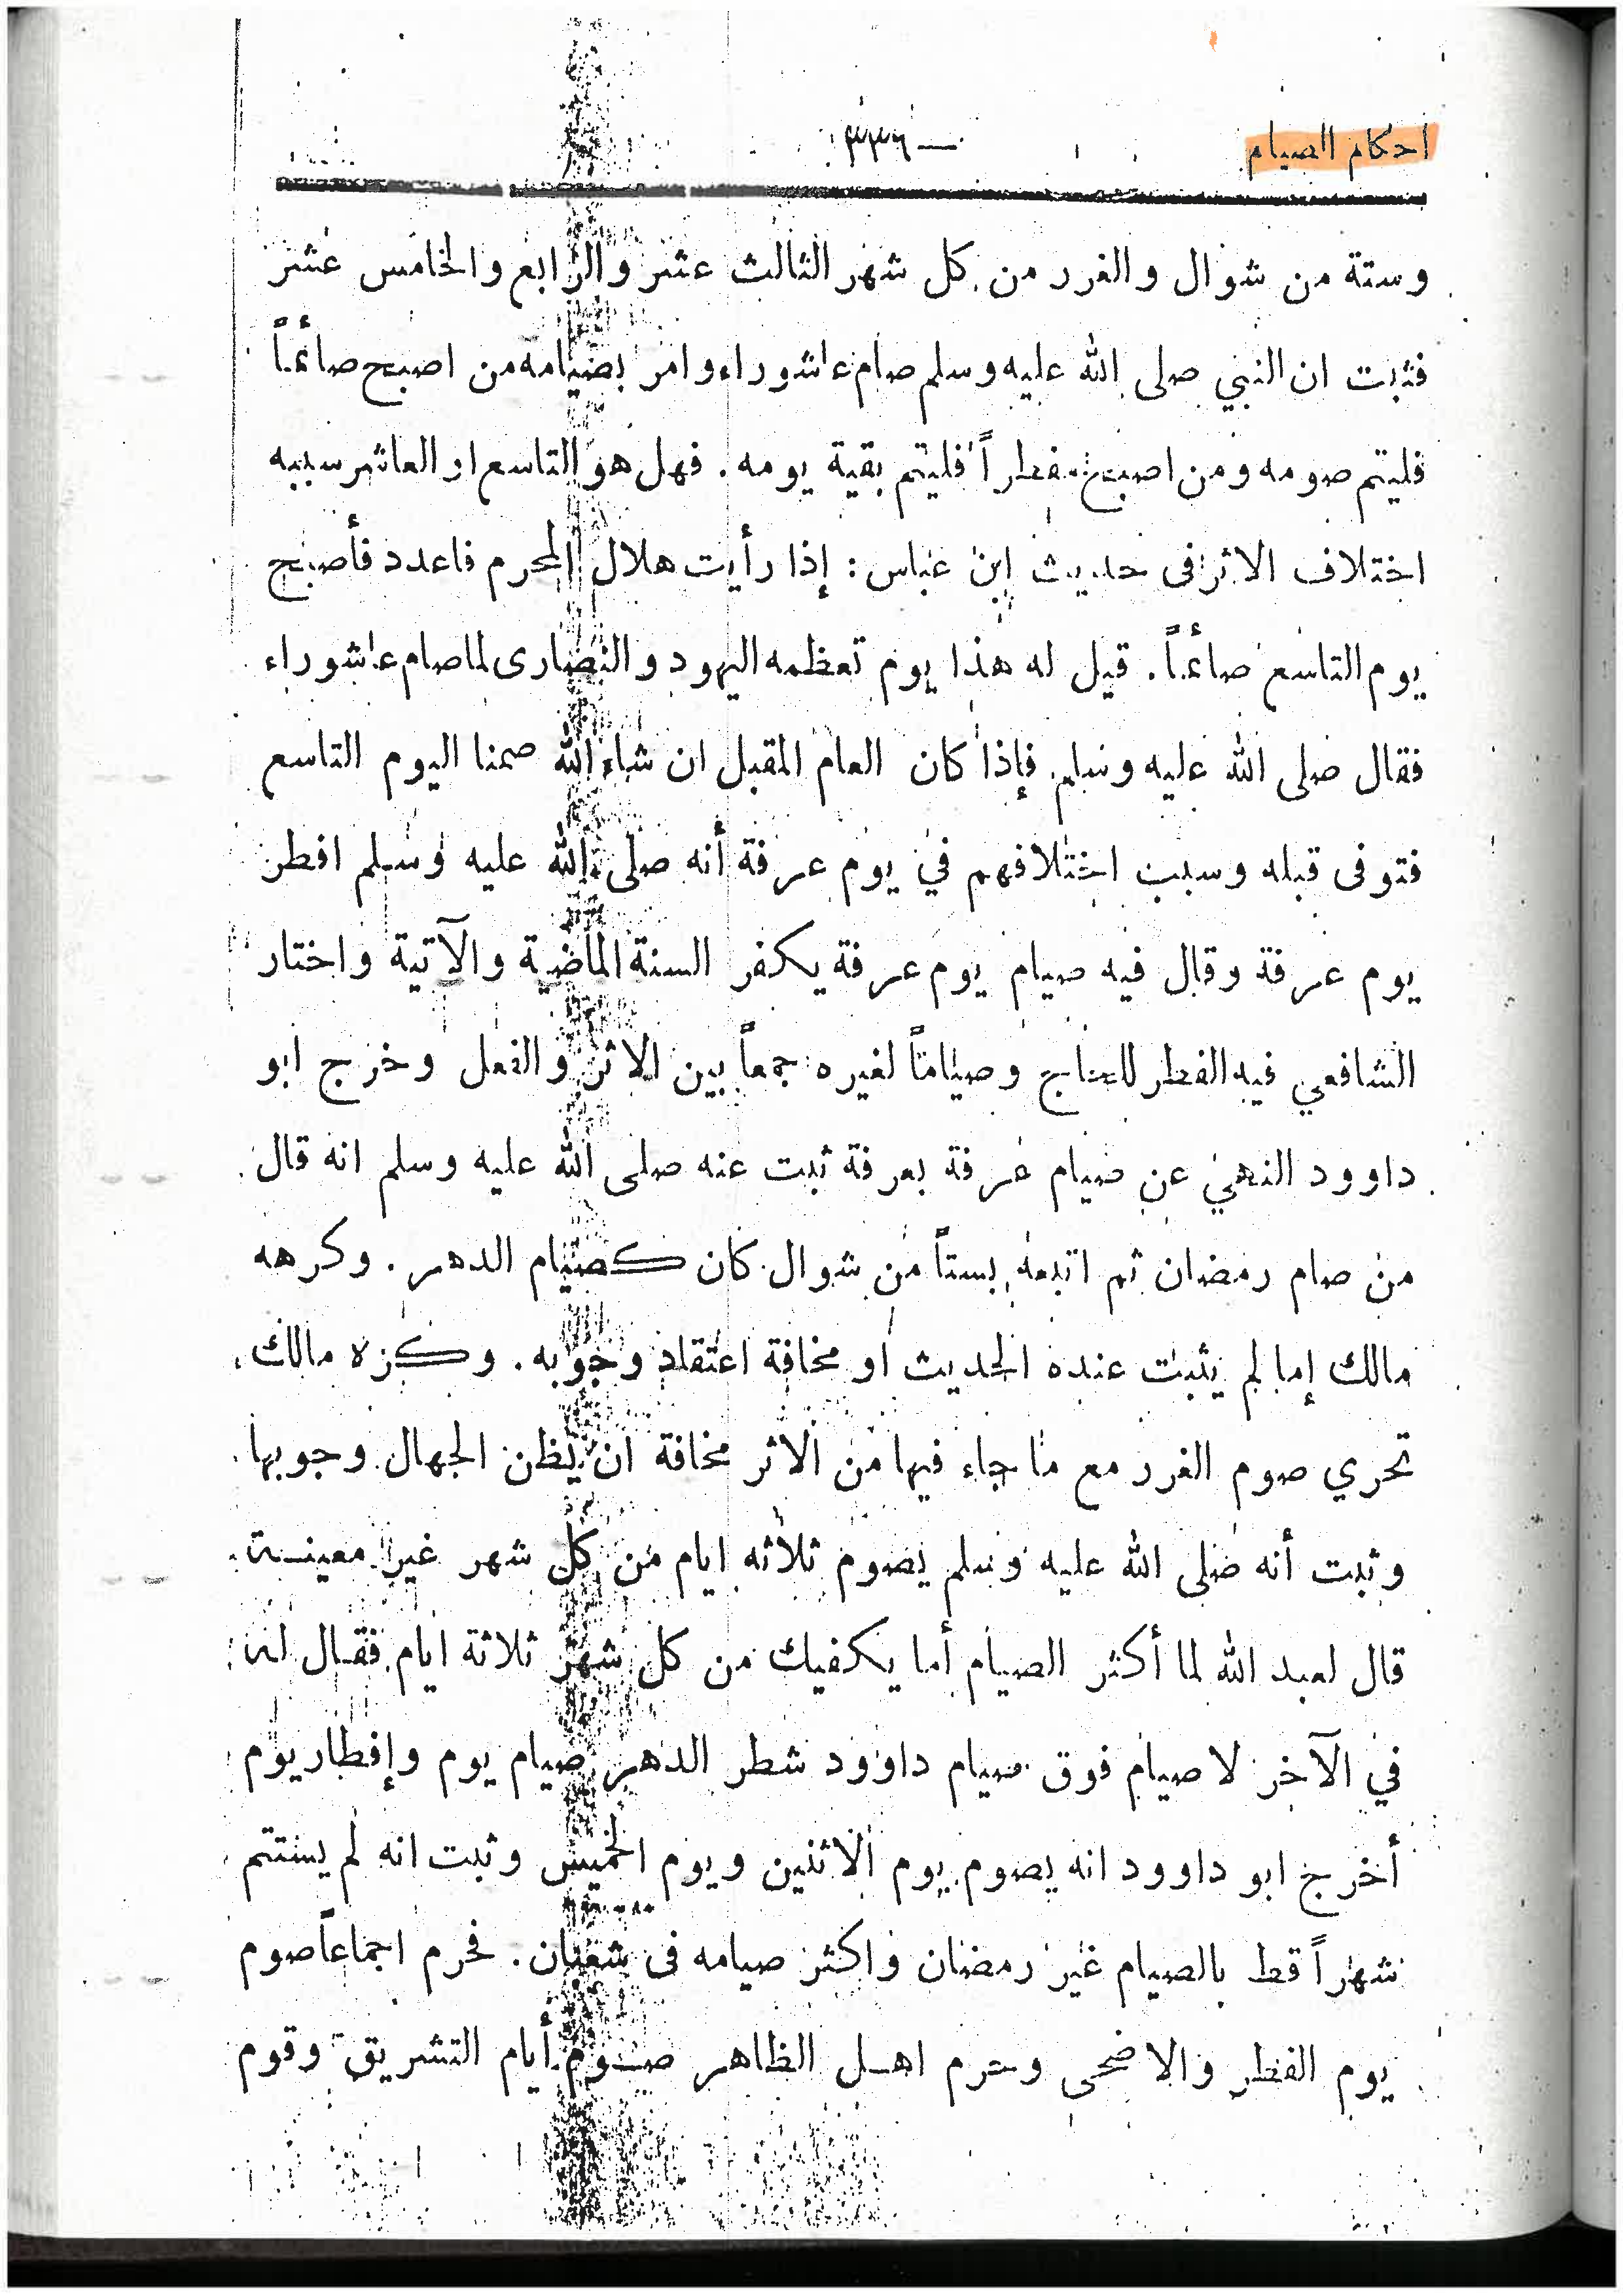 احكام الصيام
وستة من شوال والغرر من كل شهر الثالث عشر والرابع والخامس عشر
فثبت ان النبي صلى الله عليه وسلم صام عاشوراء وامر بصيامه من اصبح صائماً
فليتم صومه ومن اصبح مفطراً فليتم بقية يومه. فهل هو التاسع او العاشر سببه
اختلاف الاثر فى حديث ابن عباس : إذا رأيت هلال المحرم فاعدد فأصبح
يوم التاسع صائماً. قيل له هذا يوم تعظمه اليهود والنصارى لما صام عاشوراء
فقال صلى الله عليه وسلم فإذا كان العام المقبل ان شاء الله صمنا اليوم التاسع
فتوفى قبله وسبب اختلافهم في يوم عرفة أنه صلى الله عليه وسلم افطر
يوم عرفة وقال فيه صيام يوم عرفة يكفر السنة الماضية والآتية واختار
الشافعي فيه الفطر للحاج وصياماً لغيره جمعاً بين الاثر والفعل وخرج ابو
داوود النهي عن صيام عرفة بعرفة ثبت عنه صلى الله عليه وسلم انه قال
من صام رمضان ثم اتبعه بستاً من شوال كان كصيام الدهر. وكرهه
مالك إما لم يثبت عنده الحديث او مخافة اعتقاد وجوبه. وكره مالك
تحري صوم الغرر مع ما جاء فيها من الاثر مخافة ان يظن الجهال وجوبها
وثبت أنه صلى الله عليه وسلم يصوم ثلاثه ايام من كل شهر غير معينة
قال لعبد الله لما أكثر الصيام أما يكفيك من كل شهر ثلاثة ايام فقال له
في الآخر لا صيام فوق صيام داوود شطر الدهر صيام يوم وإفطار يوم
أخرج ابو داوود انه يصوم يوم الاثنين ويوم الخميس وثبت انه لم يستتم
شهراً قط بالصيام غير رمضان واكثر صيامه فى شعبان. فحرم اجماعاً صوم
يوم الفطر والاضحى وحرم اهل الظاهر صوم أيام التشريق وقوم